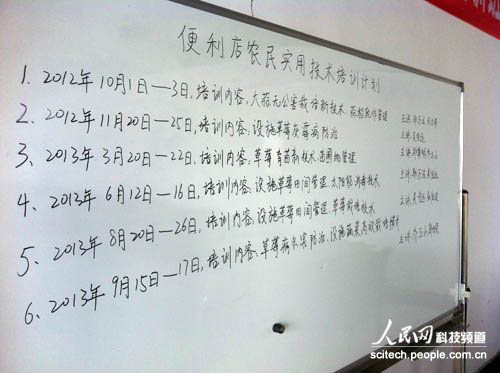 便利店农民实用技术培训计划
1、2012年10月1日—3日,培训内容、大蒜无公害栽培新技术、管理 主讲、
2、2012年11月20日—25日,培训内容、设施草莓灰霉病防治 主讲、
3、2013年3月20日—22日,培训内容、草莓育苗新技术、苗圃地管理 主讲、
4、2013年6月12日—16日,培训内容、设施草莓田间管理、太阳能消毒技术 主讲、
5、2013年8月20日—26日,培训内容、设施草莓田间管理、草莓栽植技术 主讲、
6、2013年9月15日—17日,培训内容、草莓病虫害防治、设施蔬菜高效栽培模式 主讲、
人民网 科技频道
scitech.people.com.cn